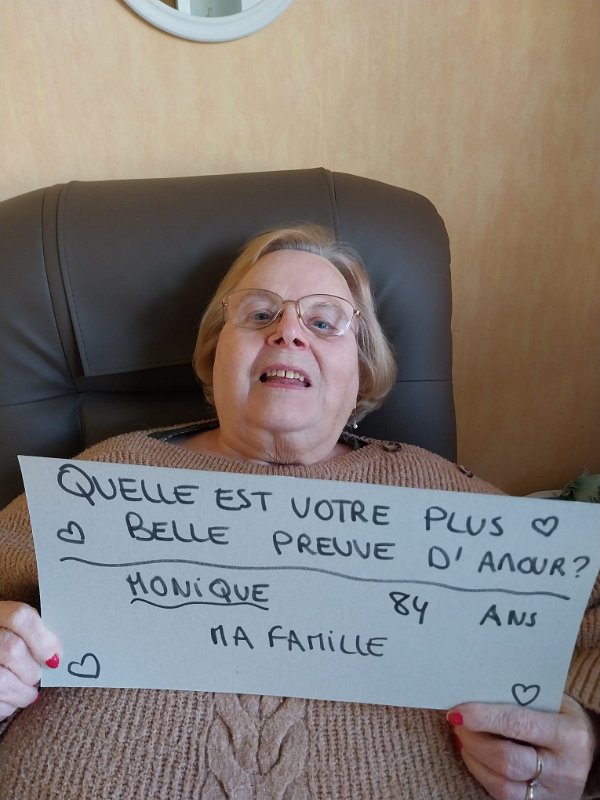 QUELLE EST VOTRE PLUS
BELLE PREUVE D'AMOUR?
MONIQUE 84 ANS
MA FAMILLE